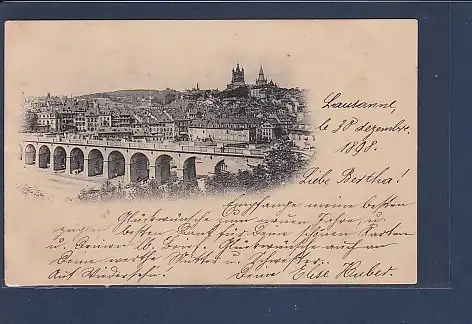 Lausanne,
le 30 dezembre.
1898.
Liebe Bertha!
Empfange meine besten
Glückwünsche zum neuen Jahre, u.
sagen besten Dank für Deine schönen Karten
u. Deinen lb. Glückwünsche auch an
Deine werthe Mutter u. Schwester.
Auf Wiedersehn! Deine Elise Huber.